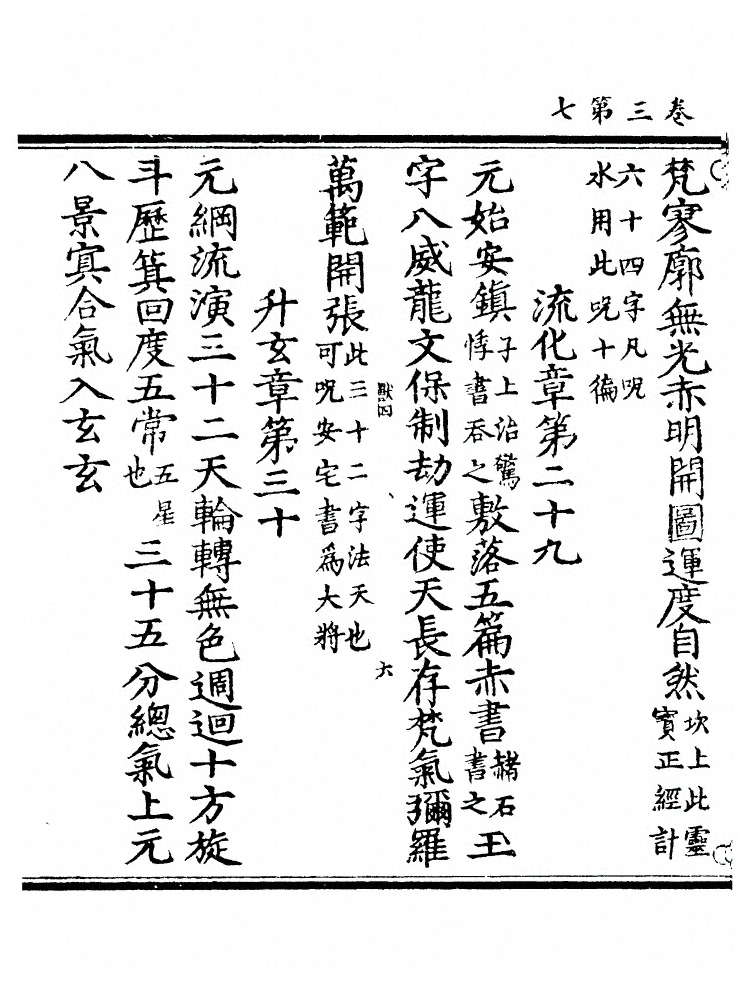 卷三第七
梵寥廓無光赤明開圖運度自然坎上此靈寶正經計
六十四字凡呪水用此呪十徧
流化章第二十九
元始安鎮子上治驚悸書吞之敷落五篇赤書赭石書之玉
字八威龍文保制劫運使天長存梵氣彌羅
獸四 六
萬範開張此三十二字法天也可呪安宅書爲大將
升玄章第三十
元綱流演三十二天輪轉無色週迴十方旋
斗歷箕回度五常五星也三十五分總氣上元
八景冥合氣入玄玄